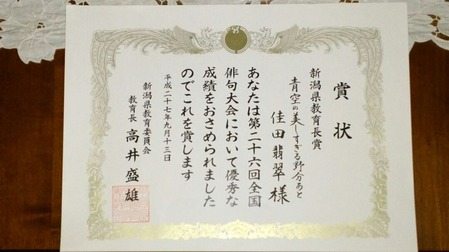 賞状
新潟県教育長賞
青空の美しすぎる野分あと
佳田翡翠様
あなたは第二十六回全国
俳句大会において優秀な
成績をおさめられました
のでこれを賞します
平成二十七年九月十三日
新潟県教育委員会
教育長 高井盛雄